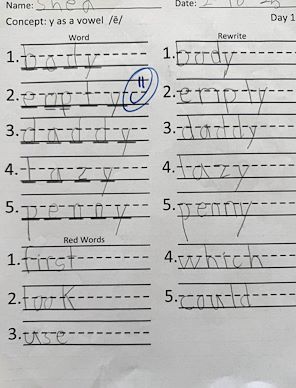 Name: Shea Date:
Concept: y as a vowel /ē/ Day 1
Word Rewrite
1. body 1. body
2. empty 2. empty
3. daddy 3. daddy
4. lazy 4. lazy
5. penny 5. penny
Red Words
1. first 4. which
2. took 5. could
3. use